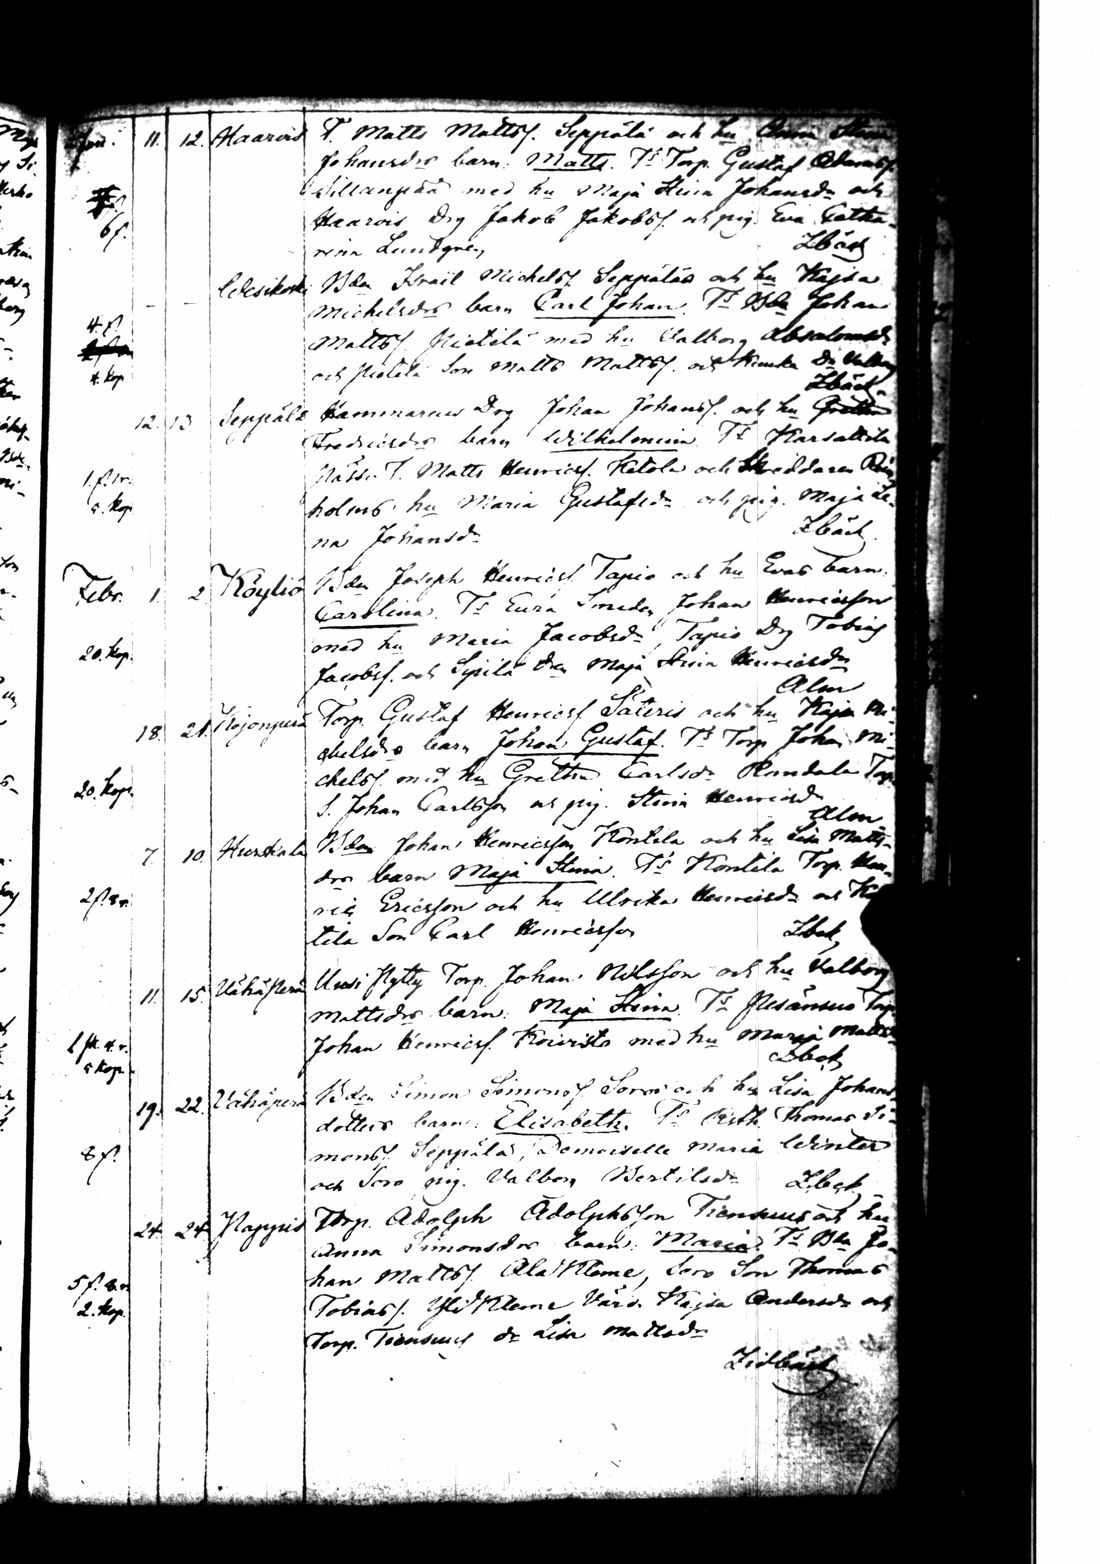 11. 12. Haarois T. Matts Mattsf. Seppälä och hu Anna Stina
Johansdrs barn: Matts. Ts Torp. Gustaf Adamsf.
med hu Maja Stina Johansdr och
6 f. Haarois Drg Jakob Jakobsf. och pig. Eva Catha-
rina Lundgren Zbäck
Bdn Israil Michelsf Seppäläs och hu Kajsa
Michelsdrs barn Carl Johan. Ts Bdn Johan
4 f. Mattsf. Pietilä med hu Valborg Absalomsdr
4. kop. och Pietilä Son Matts Mattsf. och Dr Valborg
Zbäck
12. 13 Seppälä Drg Johan Johansf. och hu Gretha
Fredricsdrs barn Wilhelmina. Ts Karsattila
1 f. T. Matts Henricsf. Ketola och Skreddaren
holms hu Maria Gustafsdr och pig. Maja Le-
na Johansdr Zbäck
Febr. 1. 2 Köyliö Bdn Joseph Henricsf. Tapio och hu Evas barn
Carolina. Ts Eura Smeden Johan Henricsson
20. kop. med hu Maria Jacobsdr, Tapio Drg Tobias
Jacobsf. och Sipilä drn Maja Stina Henricsdr
Alm
18. 21. Kojonperä Torp. Gustaf Henricsf Säteris och hu Kajsa Mi-
chelsdrs barn Johan Gustaf. Ts Torp Johan Mi-
20. kop. chelsf. med hu Gretha Carlsdr Torp.
S. Johan Carlsson och pig. Stina Henricsd
Alm
7 10. Hurskala Bdn Johan Henricsson Kontila och hu Lisa Matts-
drs barn Maja Stina. Ts Kontila Torp. Hen-
2 f. 8 r. ric Ericsson och hu Ulrika Henricsdr och
tila Son Carl Henricsson Zbck
11. 15. Vähäperä Uusi Pytty Torp. Johan Nilsson och hu Valborg
Mattsdrs barn: Maja Stina. Ts Torp
Johan Henricsf. Koivisto med hu Maria Matts
Zbck
19. 22. Vähäperä Bdn Simon Simonsf Soros och hu Lisa Johans
dotters barn: Elisabeth. Ts Thomas Si-
8 f. monsf. Seppälä, Demoiselle Maria Winter
och Soro pig. Valborg Bertilsdr Zbck
24 24 Nappis Torp. Adolph Adolphsson Tiensuus och hu
Anna Simonsdrs barn: Maria. Ts Bdn Jo-
5 f. 8 r. han Mattsf. Ala Kleme, Soro Son Thomas
2. kop. Tobiasf. Yli Kleme Värd. Kajsa Andersdr och
Torp. Tiensuus dr Lisa Mattsdr
Zidbäck